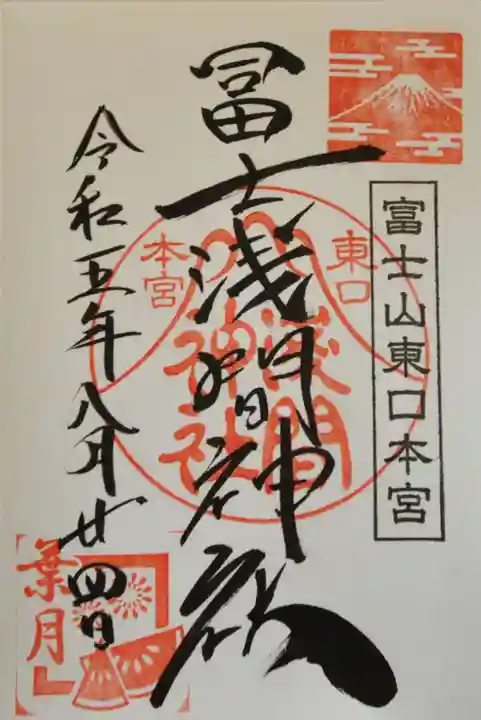 富士山東口本宮
冨士浅間神社
東口
本宮
浅間
神社
令和五年八月廿四日
葉月